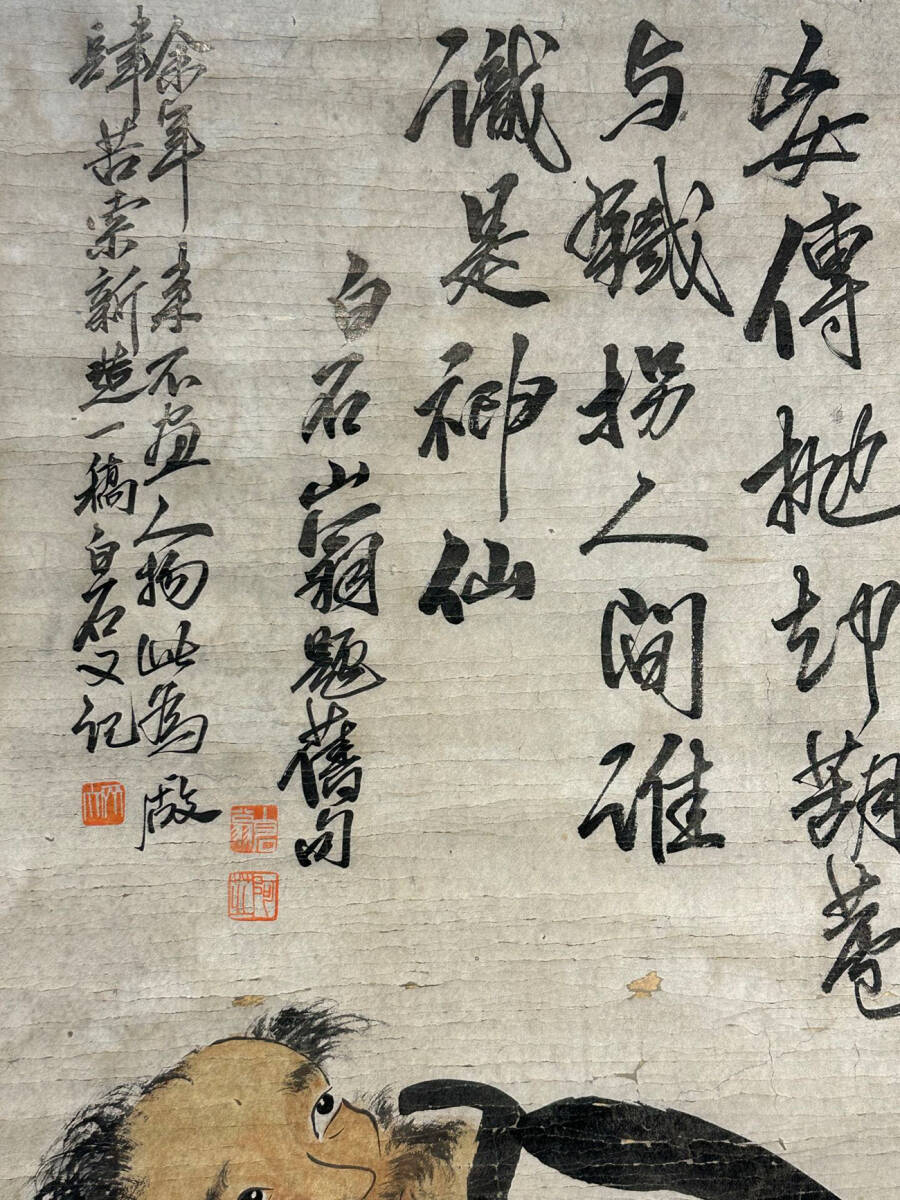 妄傳拋却葫蘆
与鐵拐人間誰
識是神仙
白石山翁題舊句
余年来不畫人物此為廠
肆苦索新造一稿白石又記
阿芝